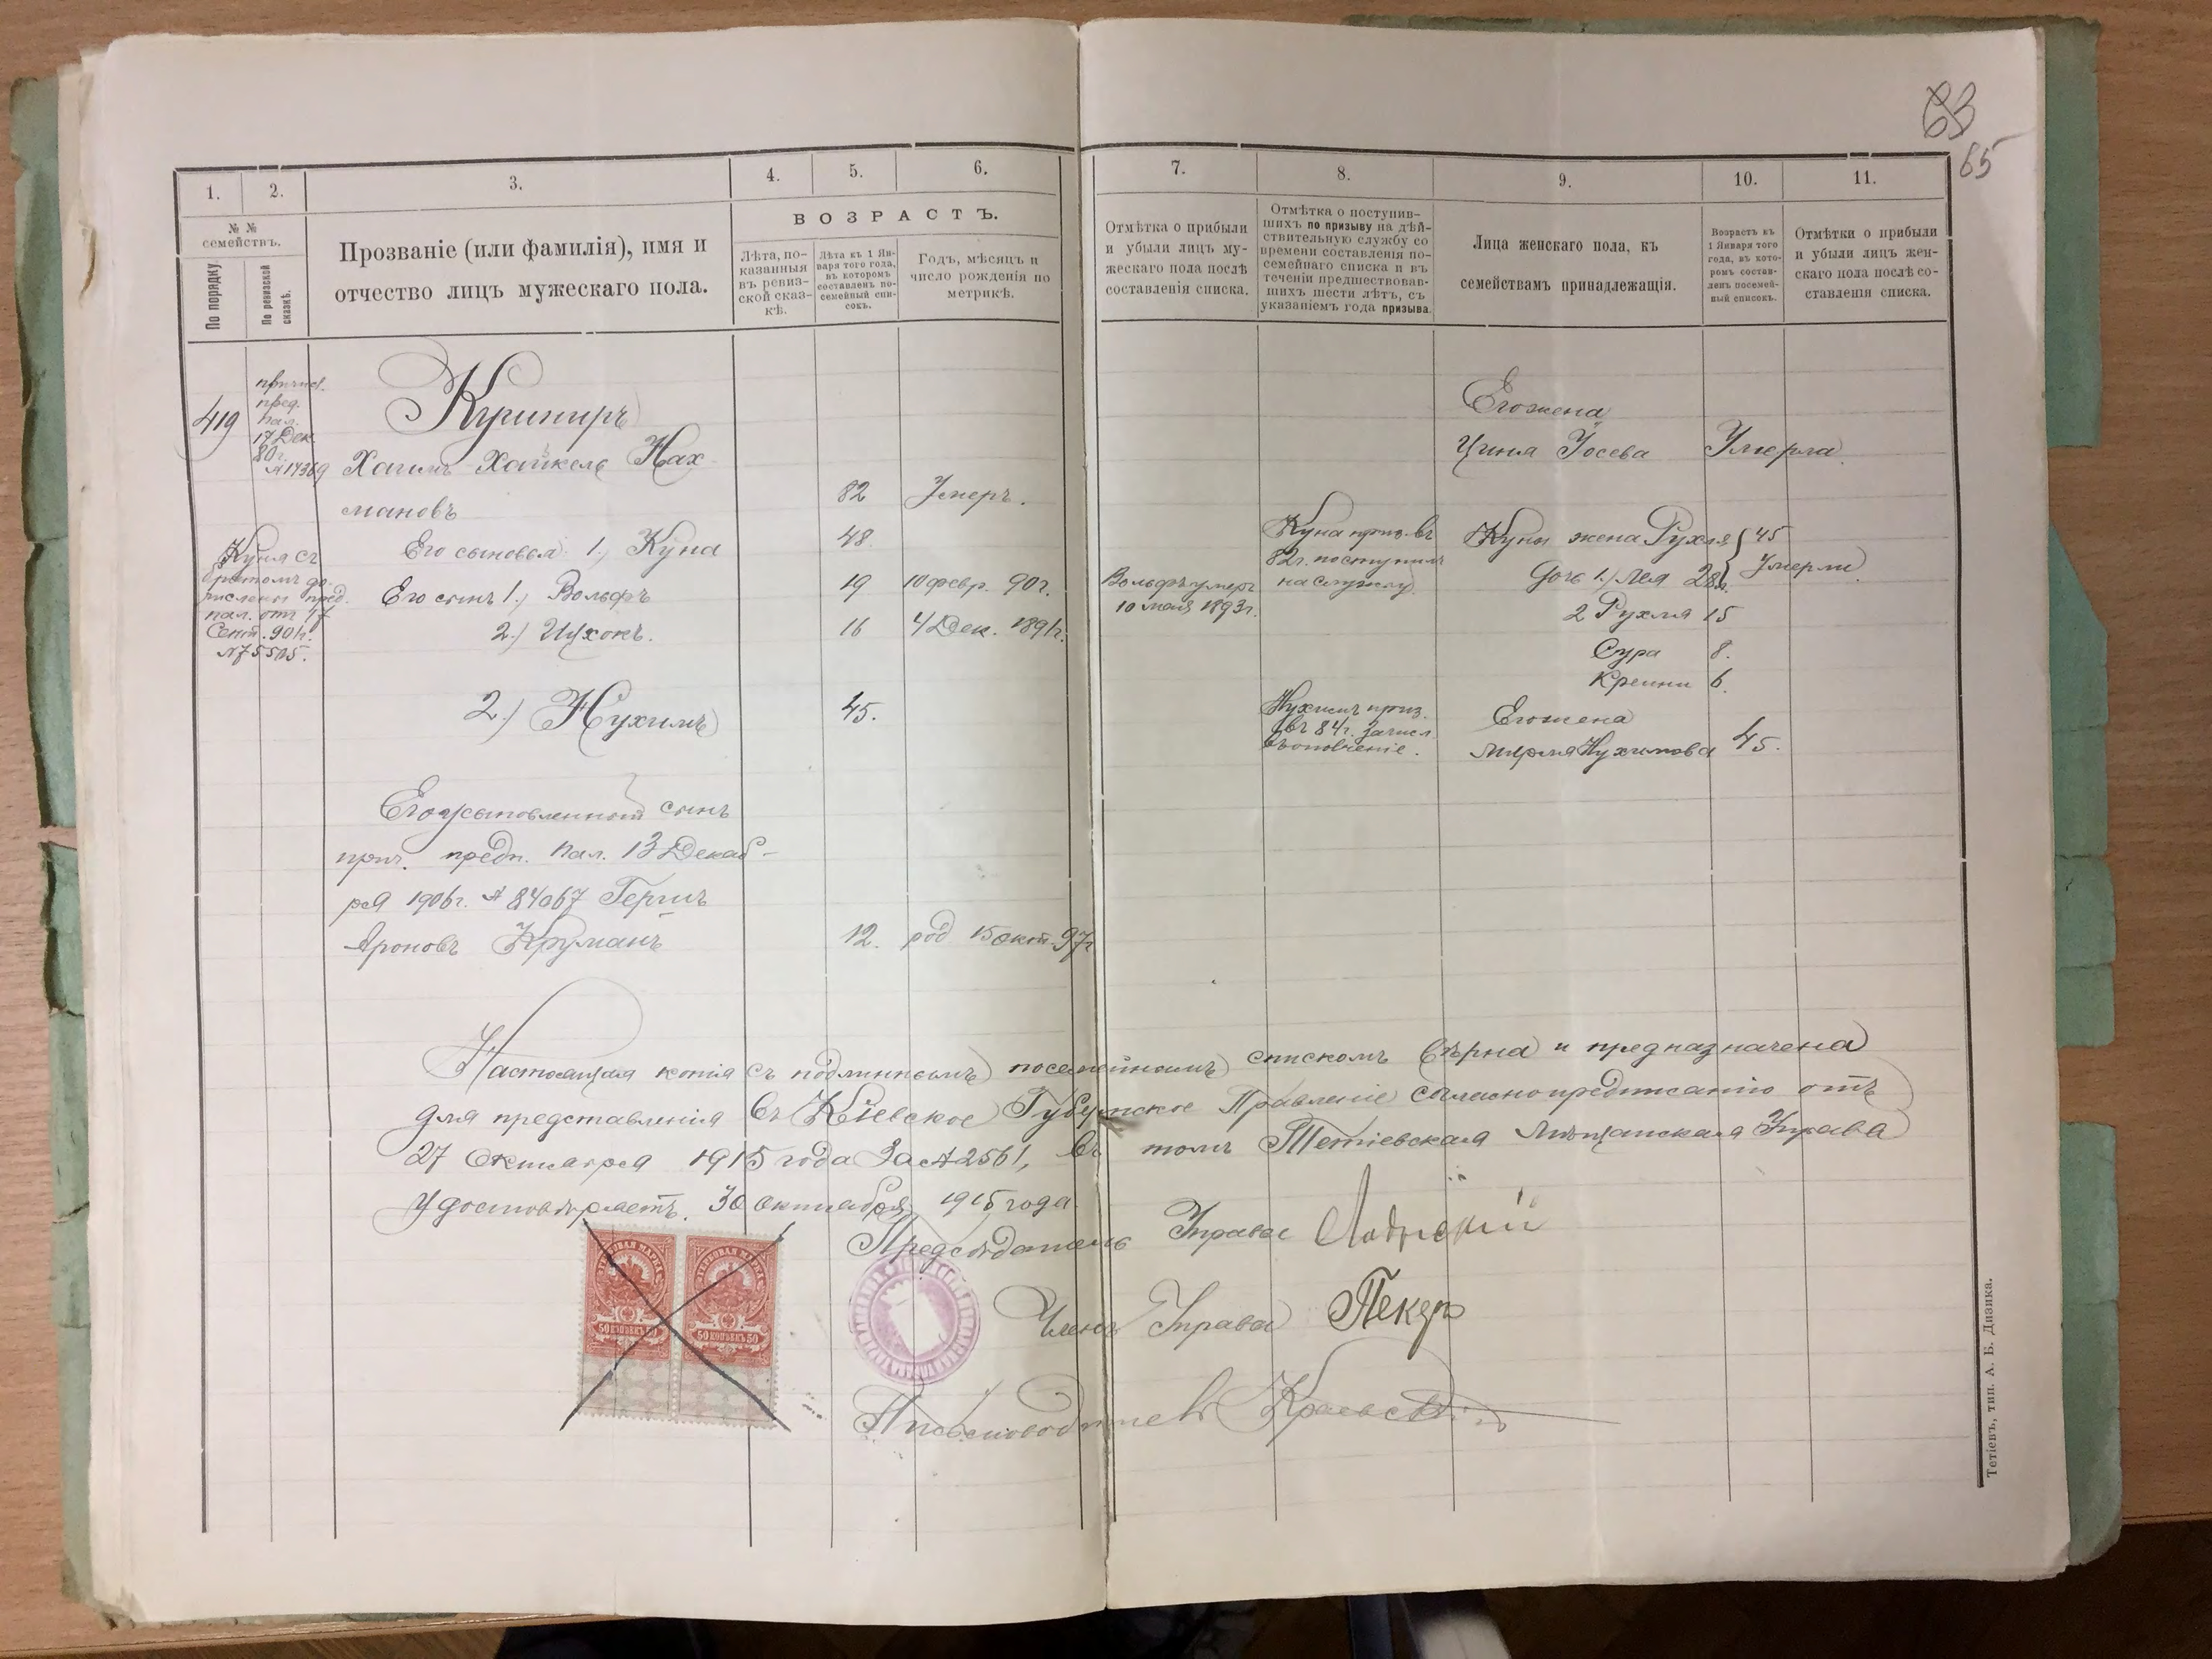 63
65
1. 2. 3. 4. 5. 6. 7. 8. 9. 10. 11.
№ №
семействъ.
По порядку
По ревизской
сказкѣ.
Прозваніе (или фамилія), имя и
отчество лицъ мужескаго пола.
ВОЗРАСТЪ.
Лѣта, по-
казанныя
въ ревиз-
ской сказ-
кѣ.
Лѣта къ 1 Ян-
варя того года,
въ которомъ
составленъ по-
семейный спи-
сокъ.
Годъ, мѣсяцъ и
число рожденія по
метрикѣ.
Отмѣтка о прибыли
и убыли лицъ му-
жескаго пола послѣ
составленія списка.
Отмѣтка о поступив-
шихъ по призыву на дѣй-
ствительную службу со
времени составленія по-
семейнаго списка и въ
теченіи предшествовав-
шихъ шести лѣтъ, съ
указаніемъ года призыва.
Лица женскаго пола, къ
семействамъ принадлежащія.
Возрастъ къ
1 Января того
года, въ кото-
ромъ состав-
ленъ посемей-
ный списокъ.
Отмѣтки о прибыли
и убыли лицъ жен-
скаго пола послѣ со-
ставленія списка.
419
причисл.
пред.
пал.
17 Дек.
80г.
№ 14369
Кушниръ
Хаимъ Хайкель Нах-
мановъ 82 Умеръ.
Его жена
Циня Іосева Умерла
Куня съ
братомъ
пред.
пал. отъ 17
Сент. 90г.
№ 75505.
Его сыновья: 1.) Куна 48
Куна приз. въ
82г. поступилъ
на службу
Куны жена Рухля 45
дочь 1.) Лея 28 Умерли
Его сынъ 1.) Вольфъ 19 10 февр. 90г.
Вольфъ умеръ
10 мая 1893г.
2 Рухля 15
2.) Ицхокъ. 16 4 Дек. 1891г.
Сура 8.
Крейни 6.
2.) Нухимъ 45.
Нухимъ приз.
въ 84г. зачисл.
въ ополченіе.
Его жена
Мирля Нухимова 45.
Его усыновленный сынъ
прич. предп. пал. 13 Декаб-
ря 1906г. № 84067 Гершъ
Ароновъ Круманъ 12. род 15 окт. 97г
Настоящая копія съ подлиннымъ посемейнымъ спискомъ вѣрна и предназначена
для представленія въ Кіевское Губернское Правленіе согласно предписанію отъ
27 Октября 1915 года За № 2561, въ томъ Тетіевская Мѣщанская Управа
удостовѣряетъ. 30 Октября 1915 года.
Предсѣдатель Управы
Членъ Управы Пекеръ
Письмоводитель
ГЕРБОВАЯ МАРКА
50 КОПѢЕКЪ 50
ГЕРБОВАЯ МАРКА
50 КОПѢЕКЪ 50
Тетіевъ, тип. А. Б. Дизика.